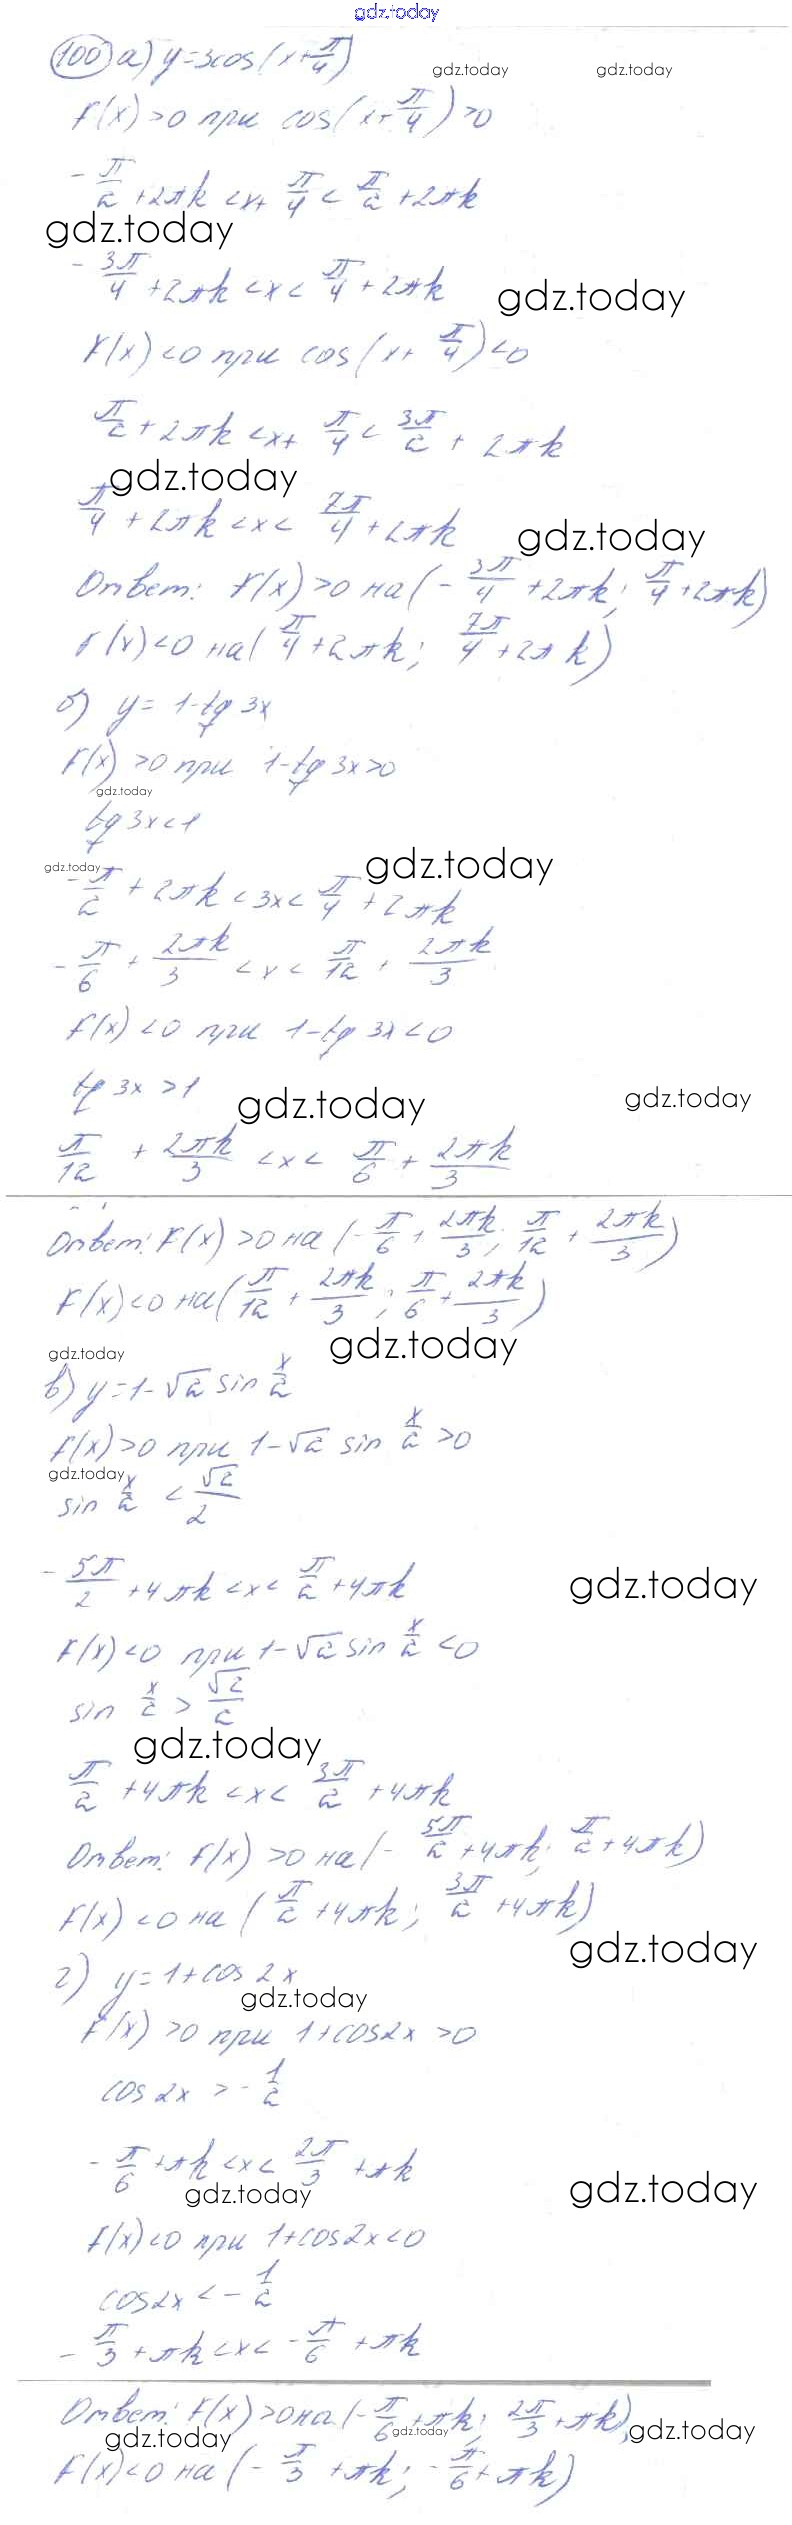 gdz.today
100 а) y=3cos(x+π/4)
gdz.today gdz.today
F(x)>0 при cos(x+π/4)>0
-π/2+2πk<x+π/4<π/2+2πk
gdz.today
-3π/4+2πk<x<π/4+2πk
gdz.today
F(x)<0 при cos(x+π/4)<0
π/2+2πk<x+π/4<3π/2+2πk
gdz.today
π/4+2πk<x<7π/4+2πk
gdz.today
Ответ: F(x)>0 на (-3π/4+2πk; π/4+2πk)
F(x)<0 на (π/4+2πk; 7π/4+2πk)
б) y=1-tg3x
F(x)>0 при 1-tg3x>0
gdz.today
tg3x<1
gdz.today gdz.today
-π/2+2πk<3x<π/4+2πk
-π/6+2πk/3<x<π/12+2πk/3
F(x)<0 при 1-tg3x<0
tg3x>1
gdz.today gdz.today
π/12+2πk/3<x<π/6+2πk/3
Ответ: F(x)>0 на (-π/6+2πk/3; π/12+2πk/3)
F(x)<0 на (π/12+2πk/3; π/6+2πk/3)
gdz.today gdz.today
в) y=1-√2 sin x/2
F(x)>0 при 1-√2 sin x/2>0
gdz.today
sin x/2<√2/2
-5π/2+4πk<x<π/2+4πk
gdz.today
F(x)<0 при 1-√2 sin x/2<0
sin x/2>√2/2
gdz.today
π/2+4πk<x<3π/2+4πk
Ответ: F(x)>0 на (-5π/2+4πk; π/2+4πk)
F(x)<0 на (π/2+4πk; 3π/2+4πk)
gdz.today
г) y=1+cos2x
gdz.today
F(x)>0 при 1+cos2x>0
cos2x>-1/2
-π/6+πk<x<2π/3+πk
gdz.today gdz.today
F(x)<0 при 1+cos2x<0
cos2x<-1/2
-π/3+πk<x<-π/6+πk
Ответ: F(x)>0 на (-π/6+πk; 2π/3+πk),
gdz.today gdz.today gdz.today
F(x)<0 на (-π/3+πk; -π/6+πk)